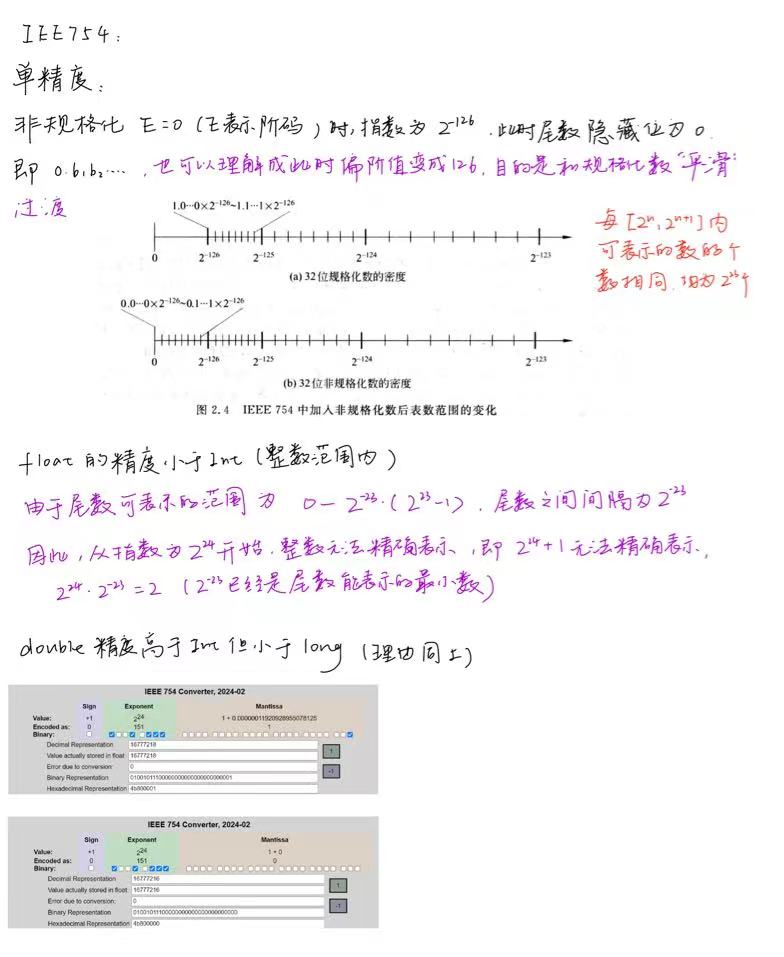 IEEE754:
单精度:
非规格化 E=0 (E表示阶码) 时, 指数为 2⁻¹²⁶ . 此时尾数隐藏位为 0.
即 0.b₁b₂…… , 也可以理解成此时偏阶值变成126, 目的是和规格化数"平滑"
过渡
1.0…0×2⁻¹²⁶~1.1…1×2⁻¹²⁶
0 2⁻¹²⁶ 2⁻¹²⁵ 2⁻¹²⁴ 2⁻¹²³
(a) 32位规格化数的密度
每 [2ⁿ, 2ⁿ⁺¹] 内
可表示的数的个
数相同, 均为 2²³个
0.0…0×2⁻¹²⁶~0.1…1×2⁻¹²⁶
0 2⁻¹²⁶ 2⁻¹²⁵ 2⁻¹²⁴ 2⁻¹²³
(b) 32位非规格化数的密度
图 2.4 IEEE 754 中加入非规格化数后表数范围的变化
float 的精度小于Int (整数范围内)
由于尾数可表示的范围为 0 — 2⁻²³·(2²³-1) , 尾数之间间隔为 2⁻²³
因此, 从指数为 2²⁴ 开始, 整数无法精确表示, 即 2²⁴+1 无法精确表示,
2²⁴·2⁻²³=2 (2⁻²³已经是尾数能表示的最小数)
double 精度高于Int 但小于 long (理由同上)
IEEE 754 Converter, 2024-02
Sign Exponent Mantissa
Value: +1 2²⁴ 1 + 0.00000011920928955078125
Encoded as: 0 151 1
Binary:
Decimal Representation 16777218
Value actually stored in float: 16777218 +1
Error due to conversion: 0
Binary Representation 01001011100000000000000000000001 -1
Hexadecimal Representation 4b800001
IEEE 754 Converter, 2024-02
Sign Exponent Mantissa
Value: +1 2²⁴ 1 + 0
Encoded as: 0 151 0
Binary:
Decimal Representation 16777216
Value actually stored in float: 16777216 +1
Error due to conversion: 0
Binary Representation 01001011100000000000000000000000 -1
Hexadecimal Representation 4b800000